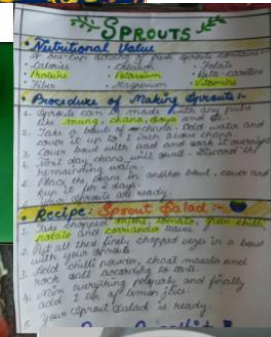 SPROUTS
Nutritional Value
A one-cup serving of fresh sprouts contains:-
• Calories • Calcium • Folate
• Proteins • Potassium • Beta-carotene
• Fiber • Magnesium • Vitamins
• Procedure of Making Sprouts:-
1. Sprouts can be made with any pulse
like mung, chana, daya and etc.
2. Take a bowl of chana. Cold water and
cover it up to 1 inch above chana.
3. Cover bowl with lead and soak it overnight
4. Next day chana will Discard the
remaining water.
5. Place the chana in another bowl, cover and
keep it for 2 days.
Your sprouts are ready.
• Recipe: Sprout Salad :-
1. Take chopped onion, tomato, green chilli,
potato and corriander leaves.
2. Put all these finely chopped vegis in a bowl
with your sprouts
3. Add chilli powder, chaat masala and
rock salt according to taste.
4. Mix everything properly and finally
add 2 of lemon juice.
5. Your Sprout Salad is ready.